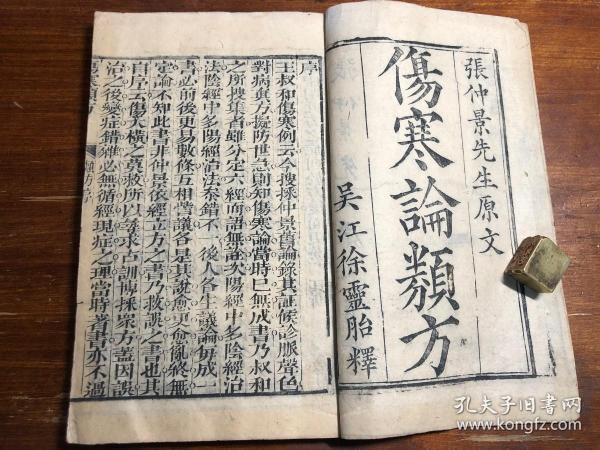 張仲景先生原文
傷寒論類方
吳江徐靈胎釋
序
王叔和傷寒例云今搜採仲景舊論錄其証候診脈聲色
對病真方擬防世急則知傷寒論當時已無成書乃叔和
之所搜集者雖分定六經而語無詮次陽經中多陰經治
法陰經中多陽經治法叅錯不一後人各生議論每成一
書必前後更易數條互相訾議各是其說愈更愈亂終無
定論不知此書非仲景依經立方之書乃救誤之書也其
自序云傷夭橫之莫救所以尋求古訓博採衆方蓋因誤
治之後變症錯雜必無循經現症之理當時著書亦不過
孔夫子旧书网
www.kongfz.com